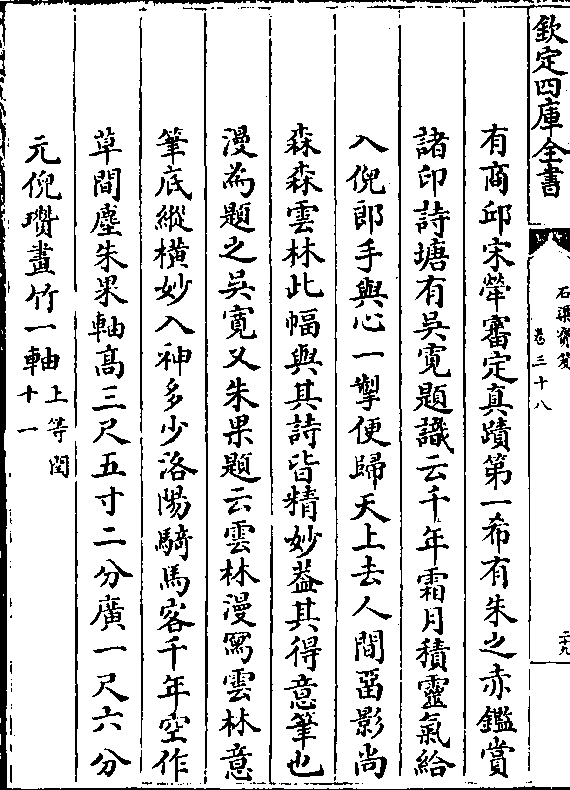 欽定四庫全書
石渠寶笈
卷三十八
二十九
有商邱宋犖審定真蹟第一希有朱之赤鑑賞
諸印詩塘有吳寛題識云千年霜月積靈氣給
入倪郎手與心一掣便歸天上去人間留影尚
森森雲林此幅與其詩皆精妙葢其得意筆也
漫為題之吳寛又朱杲題云雲林漫寫雲林意
筆底縱横妙入神多少洛陽騎馬客千年空作
草間塵朱杲軸髙三尺五寸二分廣一尺六分
元倪瓚畫竹一軸上等閏
十一